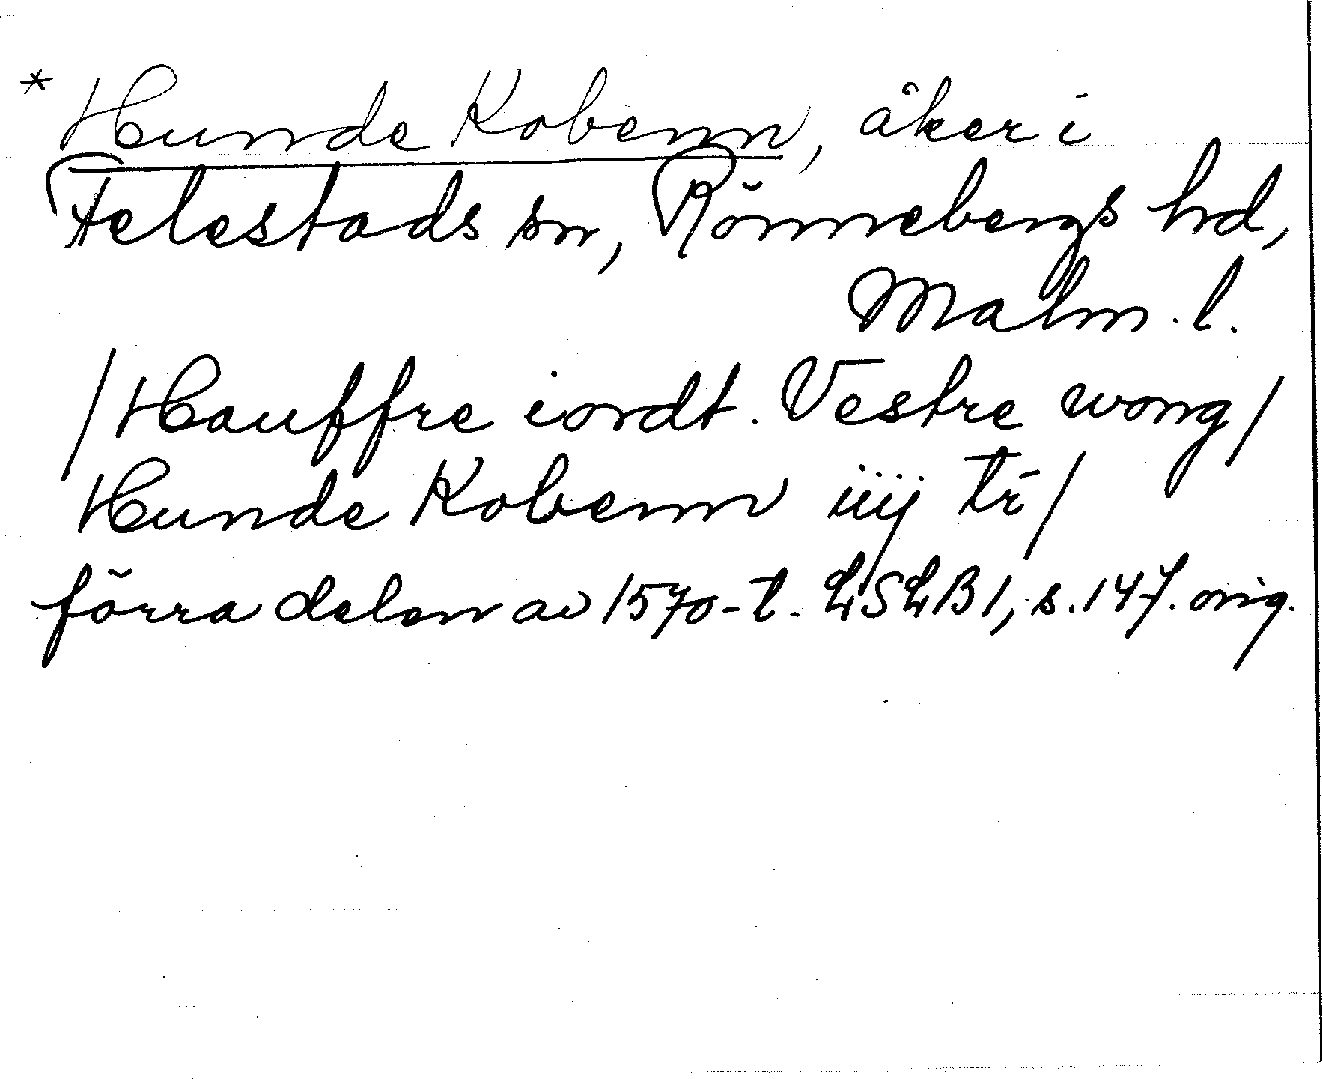 * Hunde Kobenn, åker i
Felestads sn, Rönnebergs hd,
Malm. l.
/Hauffre iordt. Vestre wong/
Hunde Kobenn iiij tr/
förra delen av 1570-t. LSLB 1, s. 147. orig.